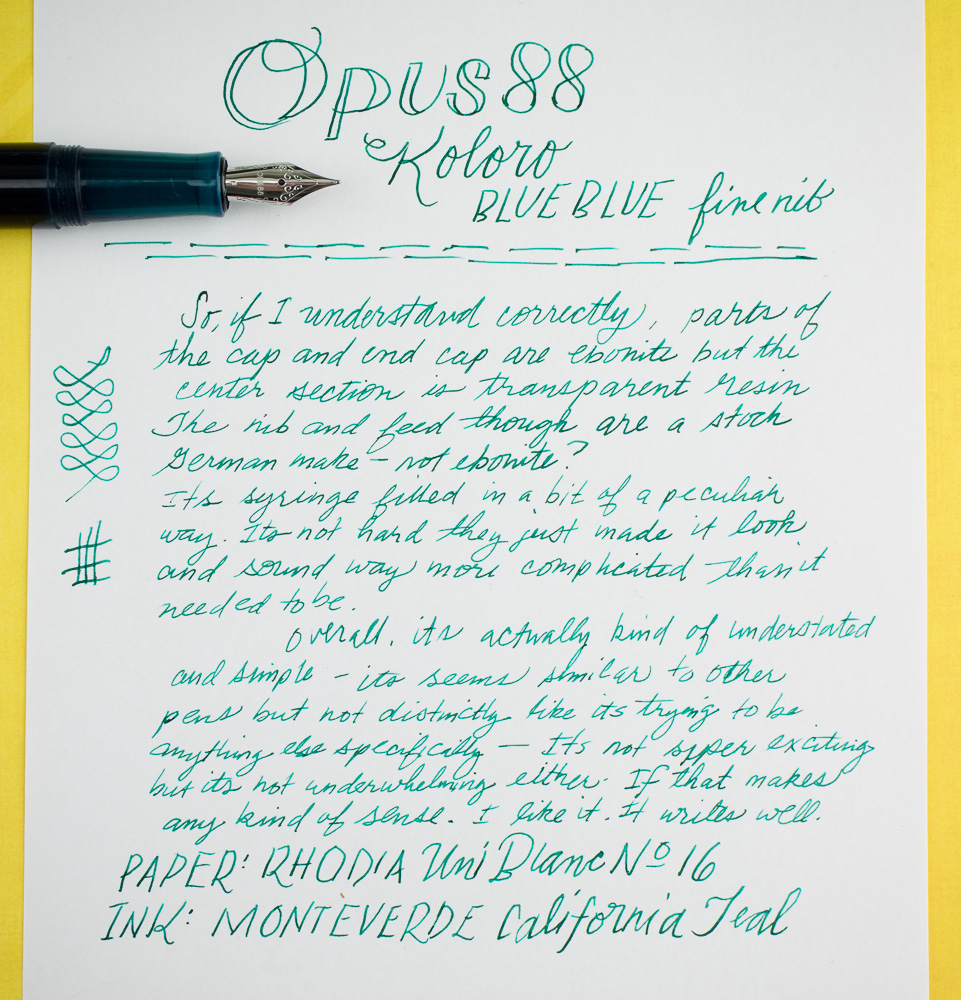 Opus 88
Koloro
BLUE BLUE fine nib
So, if I understand correctly, parts of
the cap and end cap are ebonite but the
center section is transparent resin
The nib and feed though are a stock
German make - not ebonite?
Its syringe filled in a bit of a peculiar
way. Its not hard they just made it look
and sound way more complicated than it
needed to be.
Overall. its actually kind of understated
and simple - its seems similar to other
pens but not distinctly like its trying to be
anything else specifically — Its not super exciting
but its not underwhelming either. If that makes
any kind of sense. I like it. It writes well.
PAPER: RHODIA Uni Blanc Nº 16
INK: MONTEVERDE California Teal